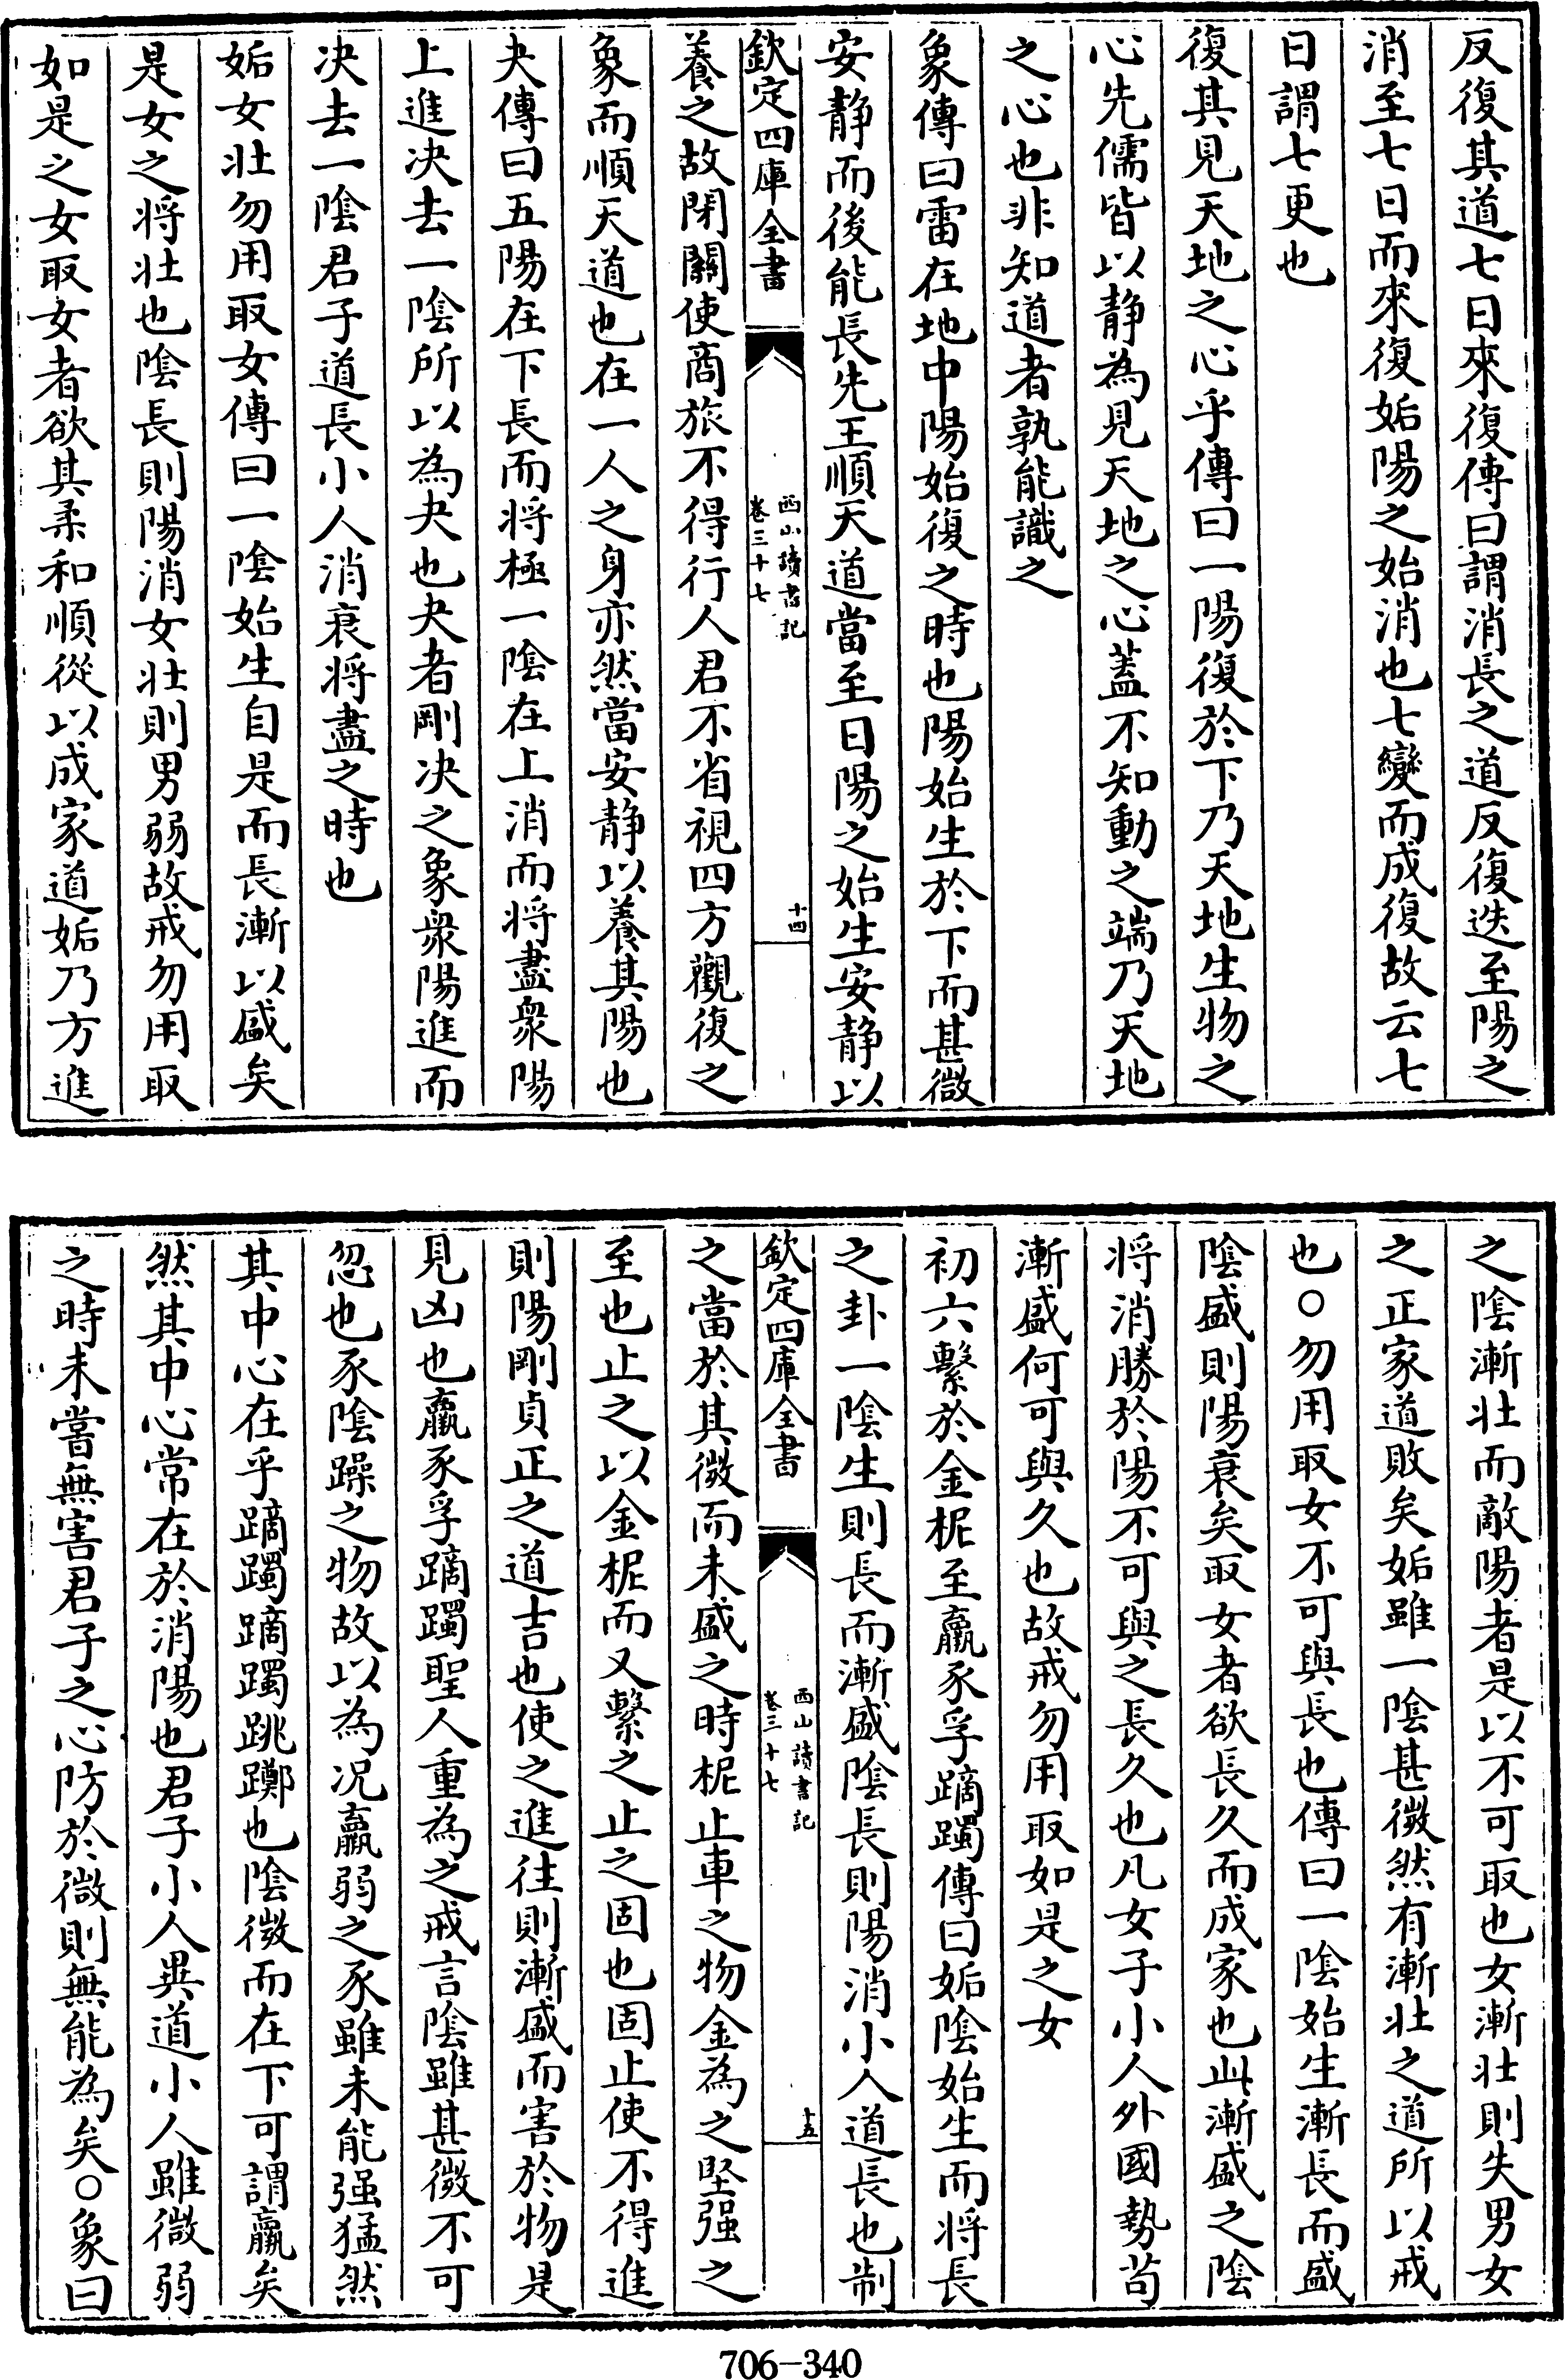 反復其道七日來復傳曰謂消長之道反復迭至陽之
消至七日而來復姤陽之始消也七變而成復故云七
日謂七更也
復其見天地之心乎傳曰一陽復於下乃天地生物之
心先儒皆以静為見天地之心蓋不知動之端乃天地
之心也非知道者孰能識之
象傳曰雷在地中陽始復之時也陽始生於下而甚微
安静而後能長先王順天道當至日陽之始生安静以
欽定四庫全書
西山讀書記
卷三十七
十四
養之故閉關使商旅不得行人君不省視四方觀復之
象而順天道也在一人之身亦然當安静以養其陽也
夬傳曰五陽在下長而將極一陰在上消而將盡衆陽
上進决去一陰所以為夬也夬者剛决之象衆陽進而
决去一陰君子道長小人消衰將盡之時也
姤女壯勿用取女傳曰一陰始生自是而長漸以盛矣
是女之將壯也陰長則陽消女壯則男弱故戒勿用取
如是之女取女者欲其柔和順從以成家道姤乃方進
之陰漸壯而敵陽者是以不可取也女漸壯則失男女
之正家道敗矣姤雖一陰甚微然有漸壯之道所以戒
也○勿用取女不可與長也傳曰一陰始生漸長而盛
陰盛則陽衰矣取女者欲長久而成家也此漸盛之陰
將消勝於陽不可與之長久也凡女子小人外國勢苟
漸盛何可與久也故戒勿用取如是之女
初六繫於金柅至羸豕孚蹢躅傳曰姤陰始生而將長
之卦一陰生則長而漸盛陰長則陽消小人道長也制
欽定四庫全書
西山讀書記
卷三十七
十五
之當於其微而未盛之時柅止車之物金為之堅强之
至也止之以金柅而又繫之止之固也固止使不得進
則陽剛貞正之道吉也使之進往則漸盛而害於物是
見凶也羸豕孚蹢躅聖人重為之戒言陰雖甚微不可
忽也豕陰躁之物故以為况羸弱之豕雖未能强猛然
其中心在乎蹢躅蹢躅跳躑也陰微而在下可謂羸矣
然其中心常在於消陽也君子小人異道小人雖微弱
之時未嘗無害君子之心防於微則無能為矣○象曰
706-340